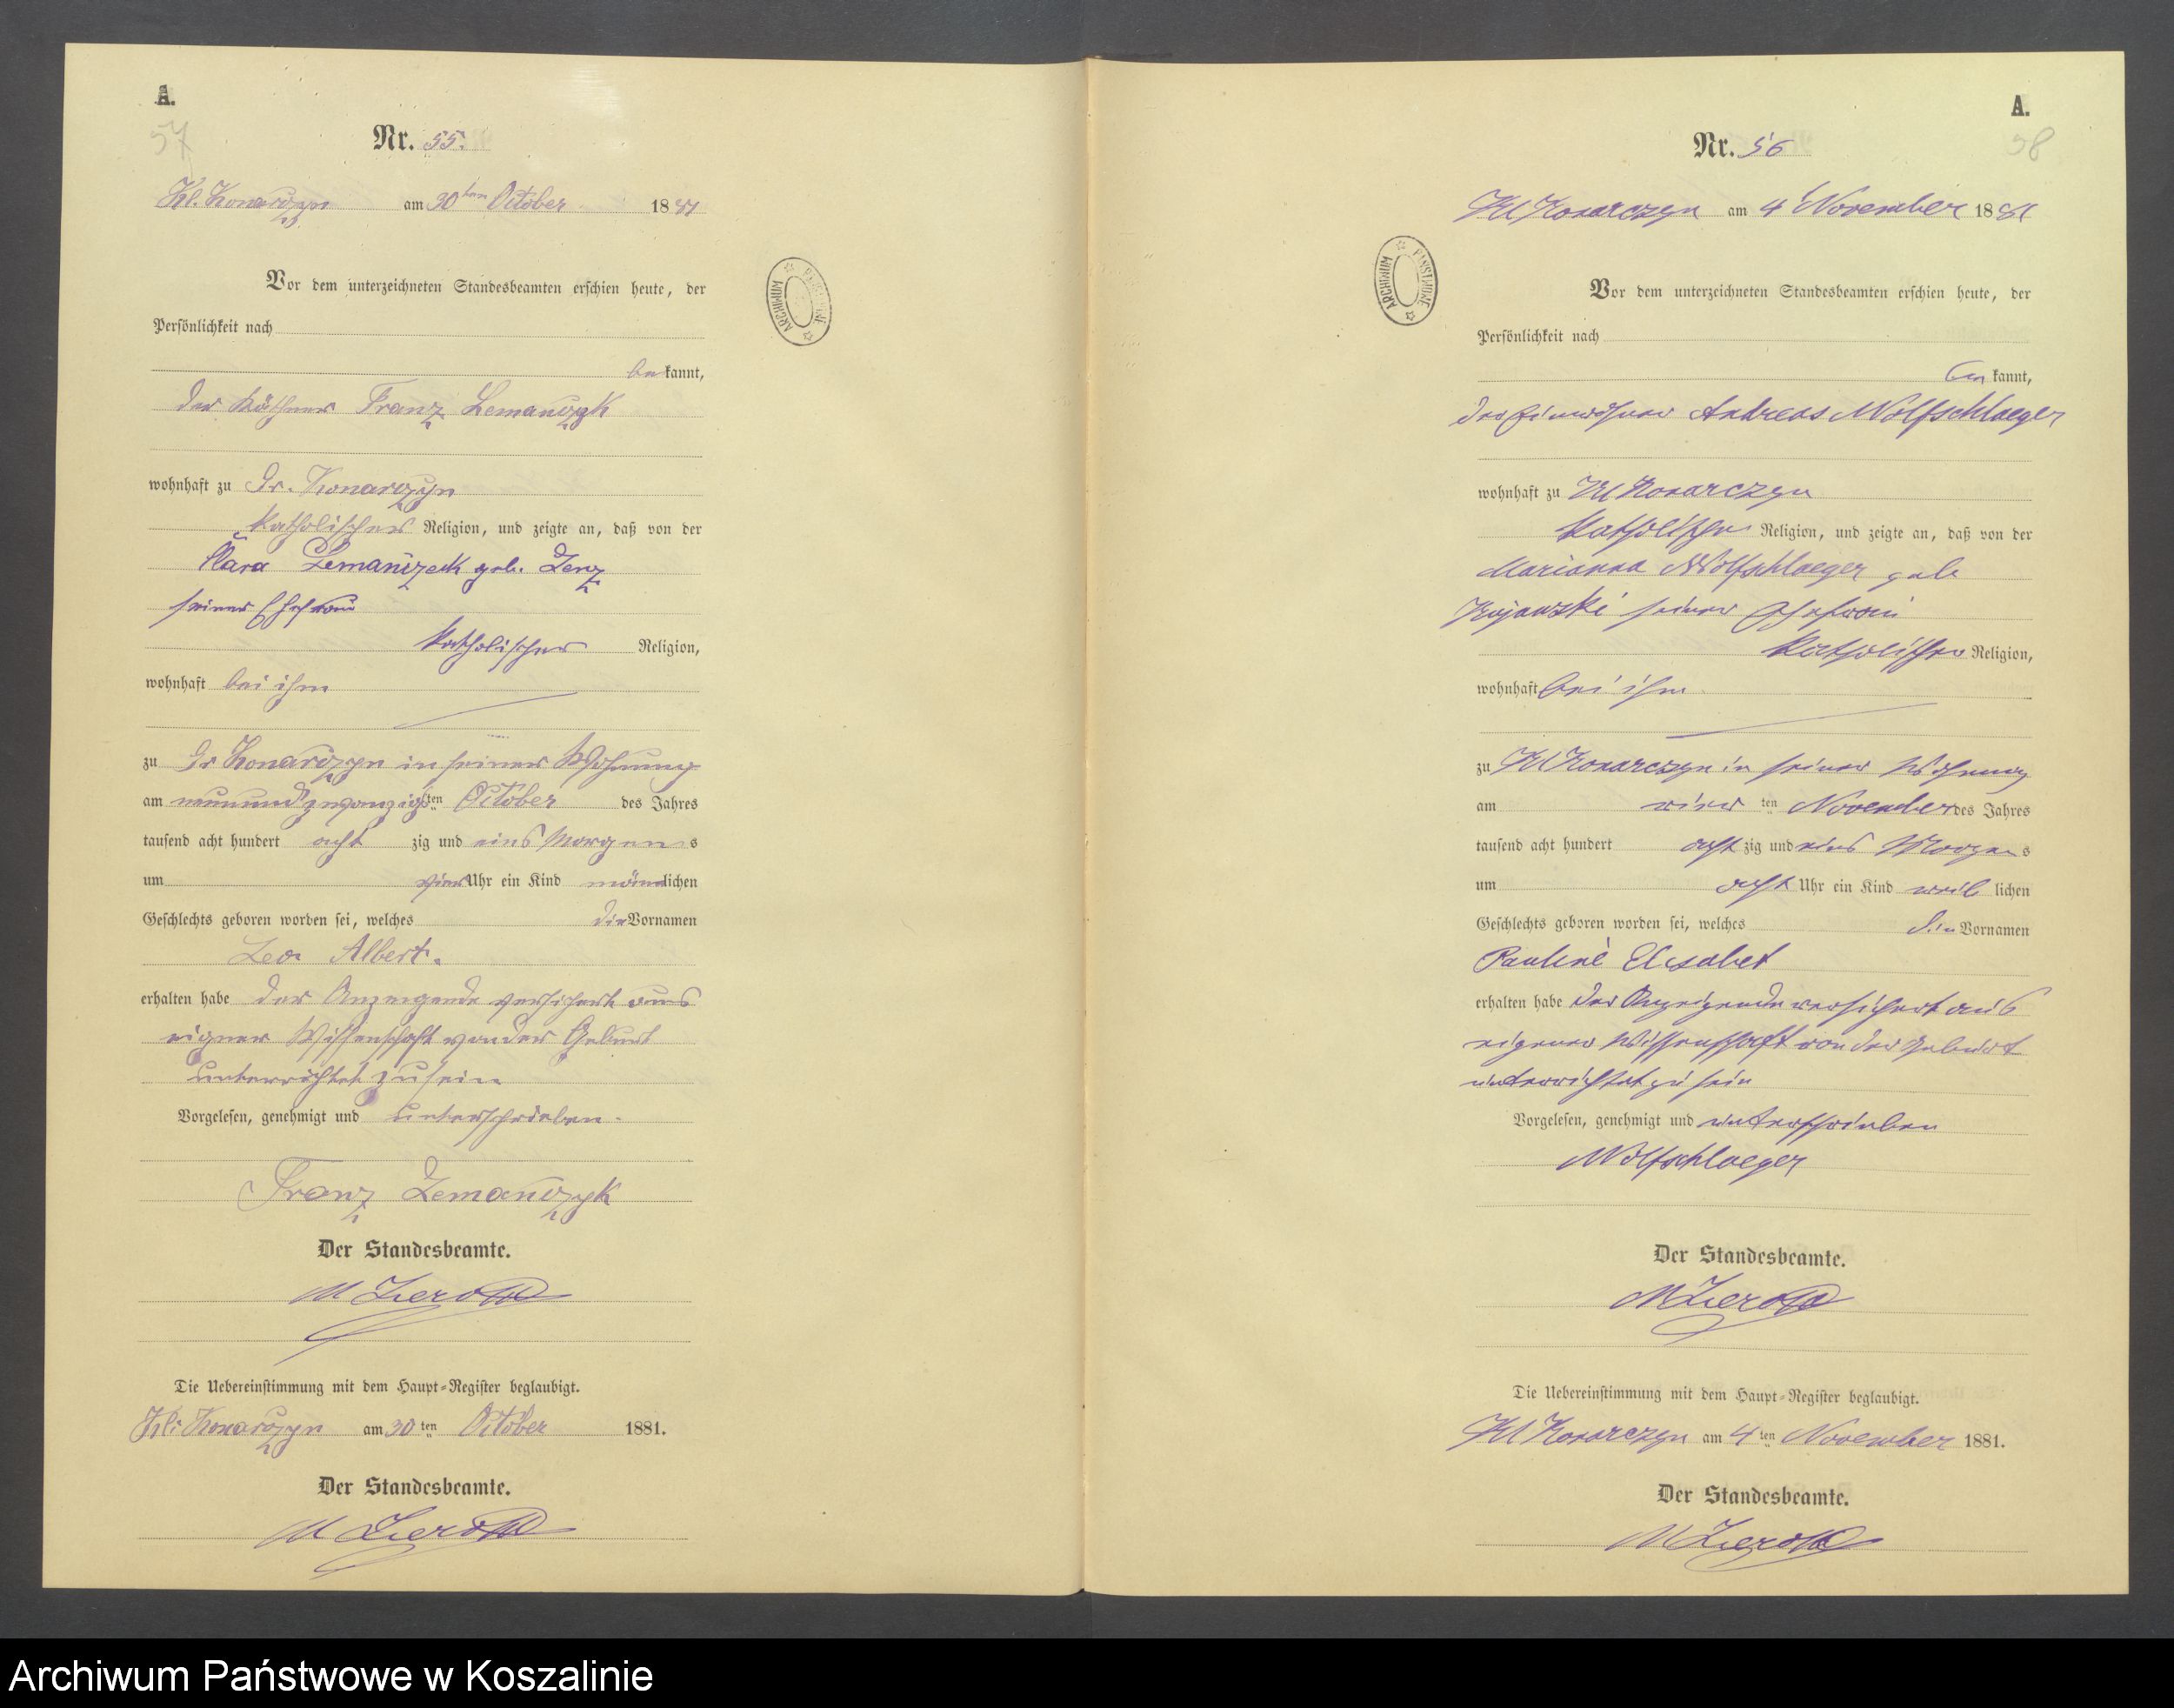 A.
57
Nr. 55.
Kl. Konarczyn am 30ten October 1881
Vor dem unterzeichneten Standesbeamten erschien heute, der
Persönlichkeit nach
bekannt,
der Käthner Franz Lemańczyk
wohnhaft zu Gr. Konarczyn
katholischer Religion, und zeigte an, daß von der
Klara Lemańczeck geb. Lenz
seiner Ehefrau
katholischer Religion,
wohnhaft bei ihm
zu Gr Konarczyn in seiner Wohnung
am neunundzwanzigsten October des Jahres
tausend acht hundert acht zig und eins Morgens
um vier Uhr ein Kind männlichen
Geschlechts geboren worden sei, welches die Vornamen
Leo Albert.
erhalten habe der Anzeigende versichert aus
eigner Wissenschaft von der Geburt
unterrichtet zu sein
Vorgelesen, genehmigt und unterschrieben
Franz Lemańczyk
Der Standesbeamte.
Die Uebereinstimmung mit dem Haupt-Register beglaubigt.
Kl: Konarczyn am 30ten October 1881.
Der Standesbeamte.
ARCHIWUM PAŃSTWOWE
A.
58
Nr. 56
Kl Konarczyn am 4 November 1881
Vor dem unterzeichneten Standesbeamten erschien heute, der
Persönlichkeit nach
be kannt,
der Einwohner Andreas Wolfschlaeger
wohnhaft zu Kl Konarczyn
katholischer Religion, und zeigte an, daß von der
Marianna Wolfschlaeger geb
Kujawski seiner Ehefrau
katholischer Religion,
wohnhaft bei ihm
zu Kl Konarczyn in seiner Wohnung
am vier ten November des Jahres
tausend acht hundert acht zig und eins Morgens
um acht Uhr ein Kind weib lichen
Geschlechts geboren worden sei, welches die Vornamen
Pauline Elisabet
erhalten habe der Anzeigende versichert aus
eigener Wissenschaft von der Geburt
unterrichtet zu sein
Vorgelesen, genehmigt und unterschrieben
Wolfschlaeger
Der Standesbeamte.
Die Uebereinstimmung mit dem Haupt-Register beglaubigt.
Kl Konarczyn am 4ten November 1881.
Der Standesbeamte.
ARCHIWUM PAŃSTWOWE
Archiwum Państwowe w Koszalinie